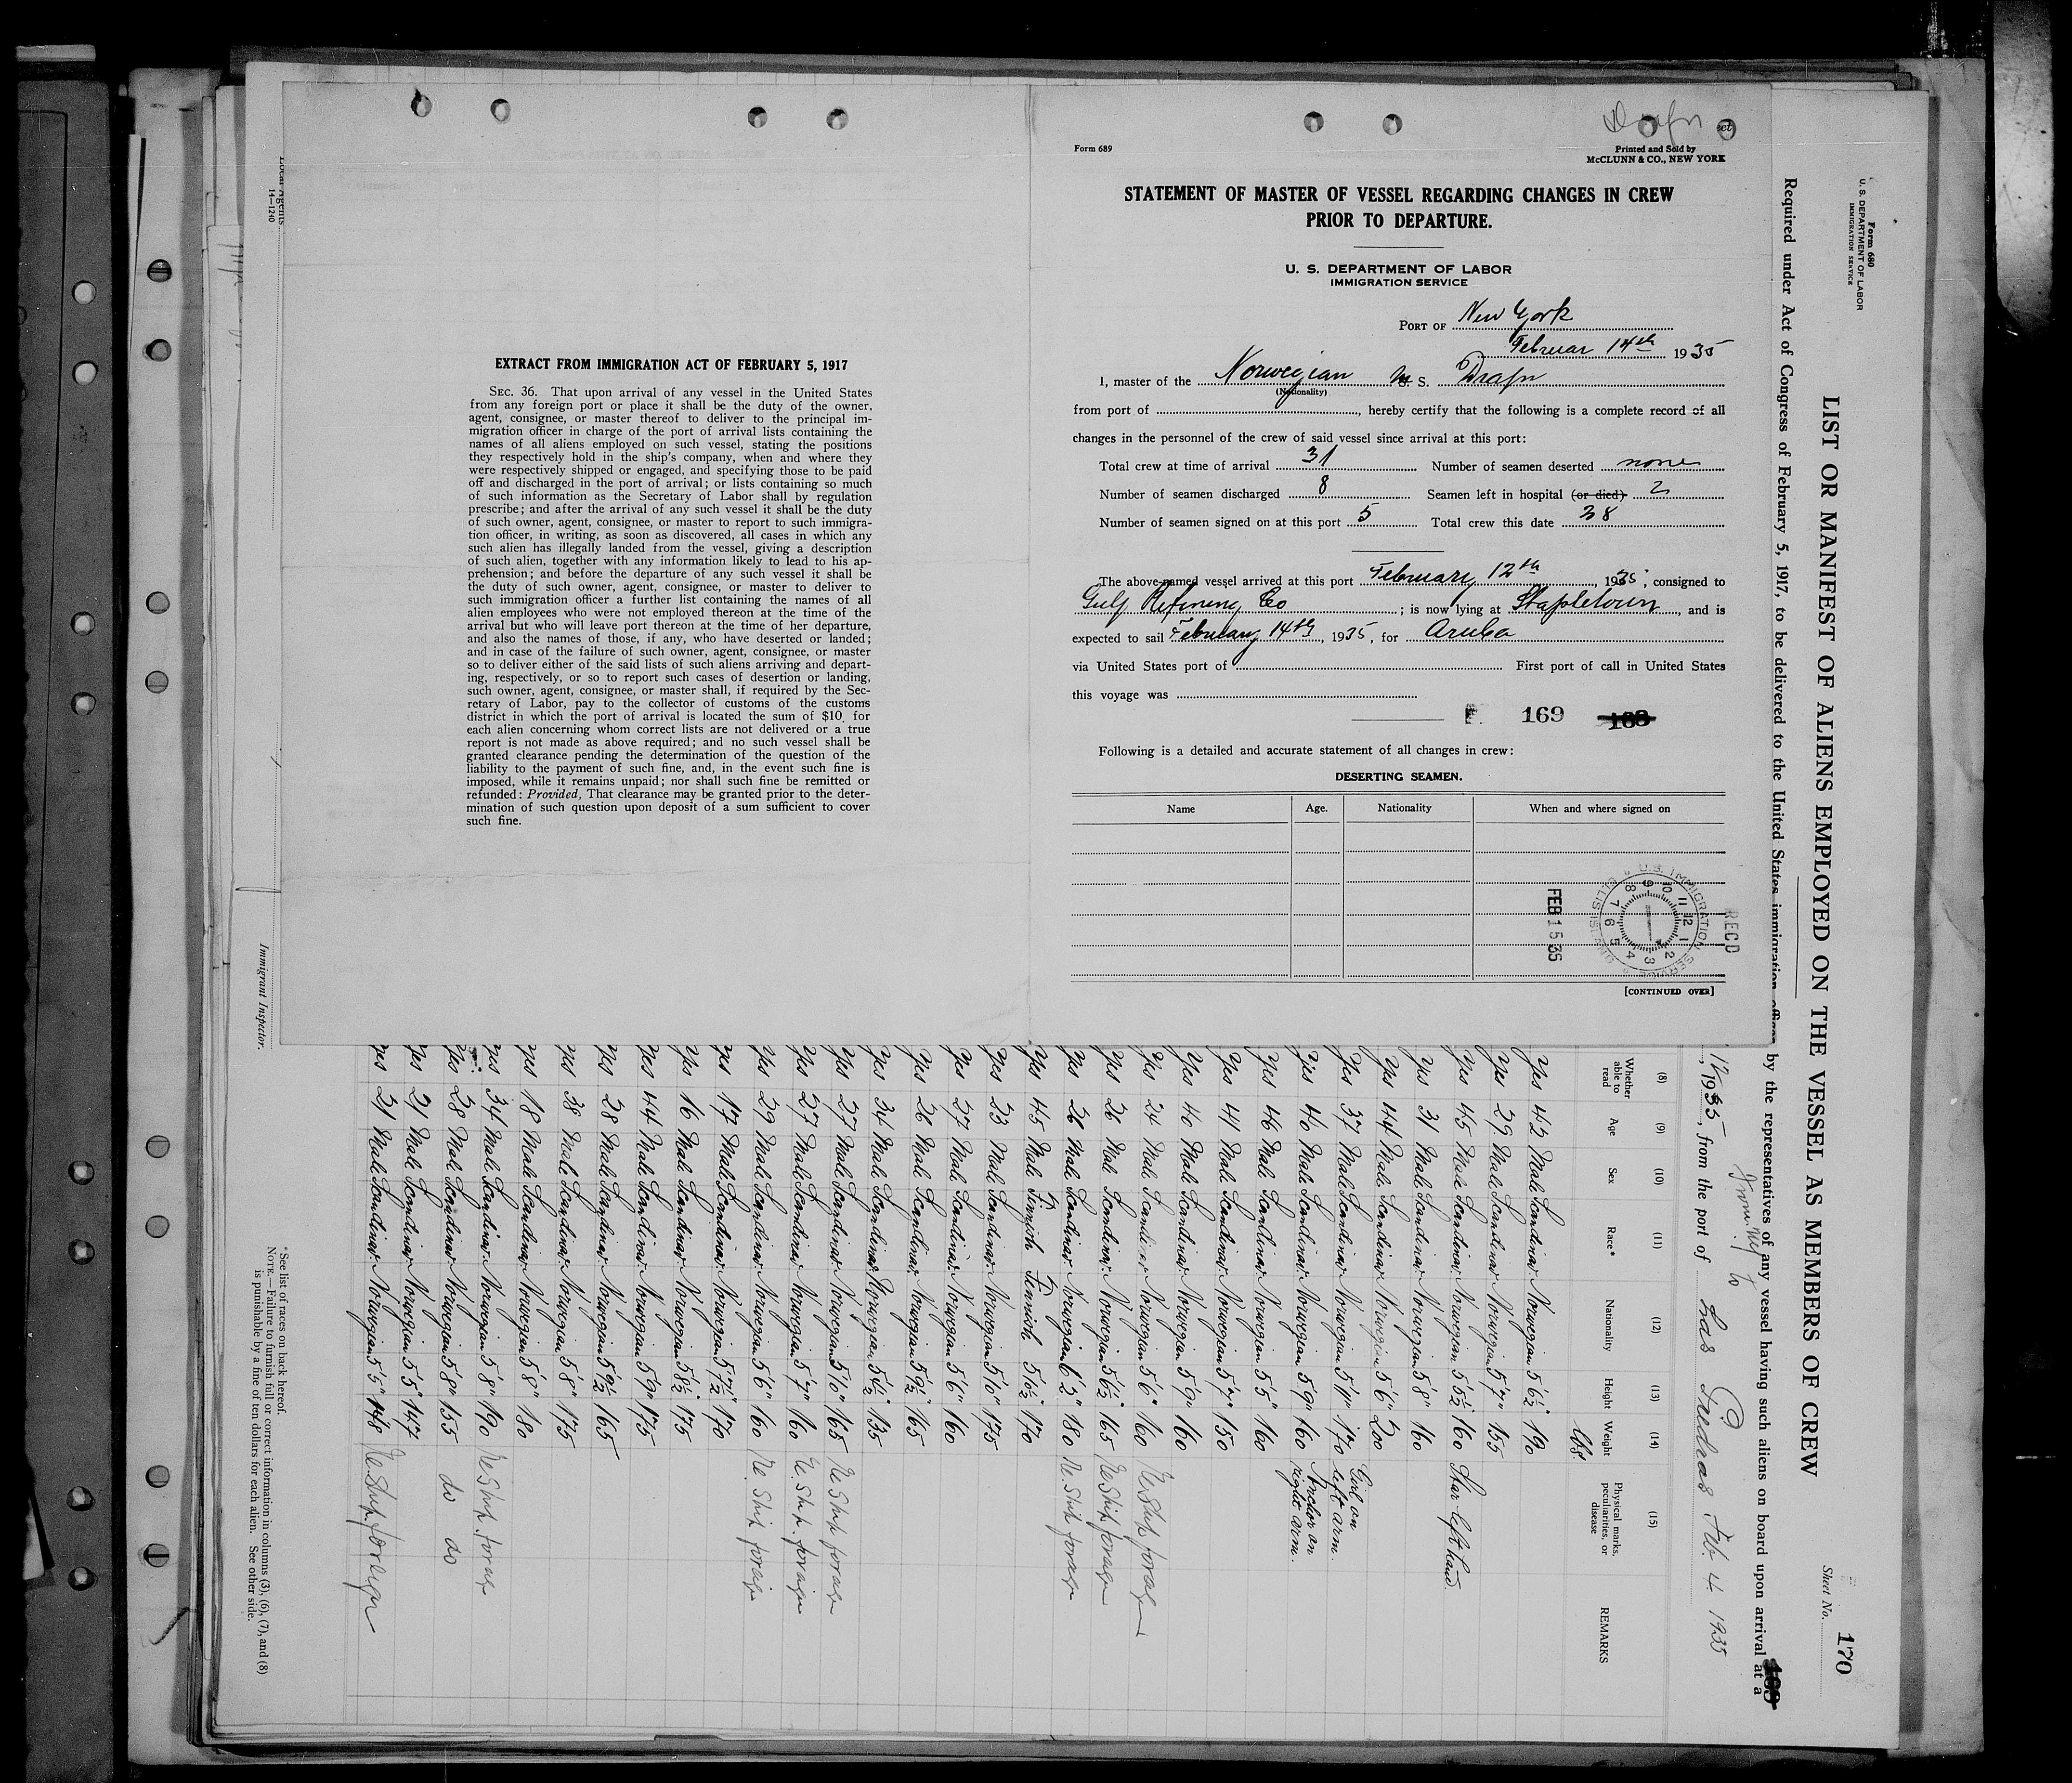 Local Agents
14—1240
Immigrant Inspector.
EXTRACT FROM IMMIGRATION ACT OF FEBRUARY 5, 1917
SEC. 36. That upon arrival of any vessel in the United States
from any foreign port or place it shall be the duty of the owner,
agent, consignee, or master thereof to deliver to the principal im-
migration officer in charge of the port of arrival lists containing the
names of all aliens employed on such vessel, stating the positions
they respectively hold in the ship's company, when and where they
were respectively shipped or engaged, and specifying those to be paid
off and discharged in the port of arrival; or lists containing so much
of such information as the Secretary of Labor shall by regulation
prescribe; and after the arrival of any such vessel it shall be the duty
of such owner, agent, consignee, or master to report to such immigra-
tion officer, in writing, as soon as discovered, all cases in which any
such alien has illegally landed from the vessel, giving a description
of such alien, together with any information likely to lead to his ap-
prehension; and before the departure of any such vessel it shall be
the duty of such owner, agent, consignee, or master to deliver to
such immigration officer a further list containing the names of all
alien employees who were not employed thereon at the time of the
arrival but who will leave port thereon at the time of her departure,
and also the names of those, if any, who have deserted or landed;
and in case of the failure of such owner, agent, consignee, or master
so to deliver either of the said lists of such aliens arriving and depart-
ing, respectively, or so to report such cases of desertion or landing,
such owner, agent, consignee, or master shall, if required by the Sec-
retary of Labor, pay to the collector of customs of the customs
district in which the port of arrival is located the sum of $10 for
each alien concerning whom correct lists are not delivered or a true
report is not made as above required; and no such vessel shall be
granted clearance pending the determination of the question of the
liability to the payment of such fine, and, in the event such fine is
imposed, while it remains unpaid; nor shall such fine be remitted or
refunded: Provided, That clearance may be granted prior to the deter-
mination of such question upon deposit of a sum sufficient to cover
such fine.
Drafn
Form 689
Printed and Sold by
McCLUNN & CO., NEW YORK
STATEMENT OF MASTER OF VESSEL REGARDING CHANGES IN CREW
PRIOR TO DEPARTURE.
U. S. DEPARTMENT OF LABOR
IMMIGRATION SERVICE
PORT OF New York
Februar 14th 1935
I, master of the Norwegian M. S. Drafn
(Nationality)
from port of , hereby certify that the following is a complete record of all
changes in the personnel of the crew of said vessel since arrival at this port:
Total crew at time of arrival 31 Number of seamen deserted none
Number of seamen discharged 8 Seamen left in hospital (or died) 2
Number of seamen signed on at this port 5 Total crew this date 28
The above-named vessel arrived at this port February 12th, 1935, consigned to
Gulf Refining Co ; is now lying at Stapletown, and is
expected to sail February 14th, 1935, for Aruba
via United States port of First port of call in United States
this voyage was
169 168
Following is a detailed and accurate statement of all changes in crew:
DESERTING SEAMEN.
Name Age. Nationality When and where signed on
REC'D
U.S. IMMIGRATION SERVICE ELLIS IS
12 1 2 3 4 5 6 7 8 9 10 11
FEB 15 35
[CONTINUED OVER]
Form 680
U. S. DEPARTMENT OF LABOR
IMMIGRATION SERVICE
Sheet No. 170
LIST OR MANIFEST OF ALIENS EMPLOYED ON THE VESSEL AS MEMBERS OF CREW
Required under Act of Congress of February 5, 1917, to be delivered to the United States immigration officer by the representatives of any vessel having such aliens on board upon arrival at a
12, 1935, from the port of Las Piedras Feb. 4. 1935
(8) (9) (10) (11) (12) (13) (14) (15)
Whether able to read Age Sex Race* Nationality Height Weight Physical marks, peculiarities, or disease REMARKS
lbs.
Yes 42 Male Scandinav. Norwegian 5'6½" 190
Yes 29 Male Scandinav. Norwegian 5'7" 155
Yes 45 Male Scandinav. Norwegian 5'5½" 160 Scar left hand.
Yes 31 Male Scandinav. Norwegian 5'8" 160
Yes 44 Male Scandinav. Norwegian 5'6" 200
Yes 37 Male Scandinav. Norwegian 5'11" 170 Girl on left arm.
Yes 40 Male Scandinav. Norwegian 5'9" 160 Anchor on right arm.
Yes 46 Male Scandinav. Norwegian 5'5" 160
Yes 41 Male Scandinav. Norwegian 5'7" 150
Yes 40 Male Scandinav. Norwegian 5'9" 160
Yes 24 Male Scandinav. Norwegian 5'6" 160 Re Ship foreign
Yes 26 Male Scandinav. Norwegian 5'6½" 165 Re Ship foreign
Yes 26 Male Scandinav. Norwegian 6'2" 180 Re Ship foreign
Yes 45 Male Finnish Finnish 5'6½" 170
Yes 23 Male Scandinav. Norwegian 5'10" 175
Yes 27 Male Scandinav. Norwegian 5'6" 160
Yes 26 Male Scandinav. Norwegian 5'9½" 165
Yes 34 Male Scandinav. Norwegian 5'4½" 135
Yes 27 Male Scandinav. Norwegian 5'10" 165 Re Ship foreign
Yes 27 Male Scandinav. Norwegian 5'7" 160 Re Ship foreign
Yes 29 Male Scandinav. Norwegian 5'6" 160 Re Ship foreign
Yes 17 Male Scandinav. Norwegian 5'7½" 170
Yes 16 Male Scandinav. Norwegian 5'8½" 175
Yes 44 Male Scandinav. Norwegian 5'9" 175
Yes 28 Male Scandinav. Norwegian 5'9½" 165
Yes 38 Male Scandinav. Norwegian 5'8" 175
Yes 18 Male Scandinav. Norwegian 5'8" 180
Yes 34 Male Scandinav. Norwegian 5'8" 190 Re Ship foreign
Yes 28 Male Scandinav. Norwegian 5'8" 155 do do
Yes 21 Male Scandinav. Norwegian 5'5" 147
Yes 21 Male Scandinav. Norwegian 5'5" 148 Re Ship foreign
* See list of races on back hereof.
NOTE.—Failure to furnish full or correct information in columns (3), (6), (7), and (8)
is punishable by a fine of ten dollars for each alien. See other side.